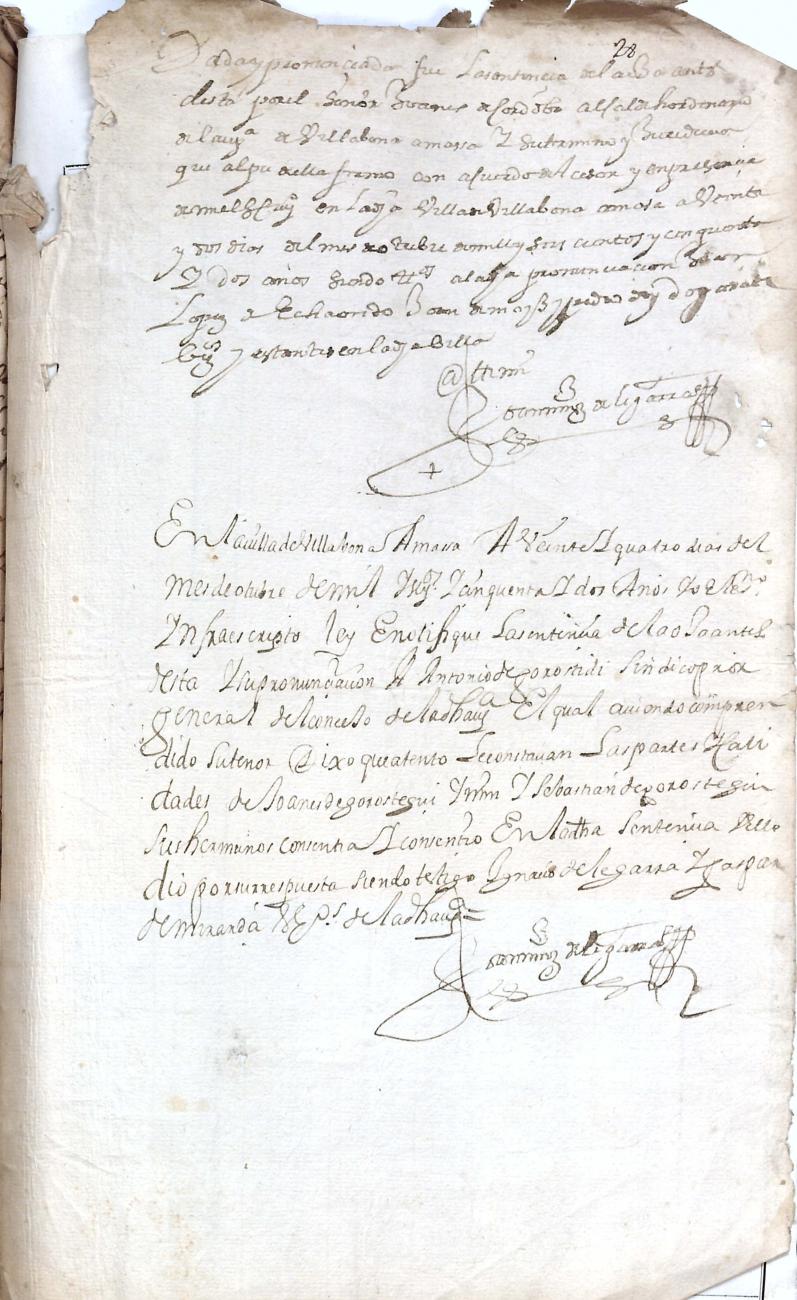 28
Dada y pronunciada fue la sentencia de la oja antes
desta por el señor Juanes de alcalde hordinario
de la vª de Villabona amassa y su termino y Juridicion
que al pie della firmo con acuerdo de Acesor y en presencia
de mi el en la dha Villa de Villabona amasa a Veinte
y dos dias del mes de otubre de mill y seis cientos y cinquenta
y dos años siendo tºs a la dha pronunciacion
Lopez de Echaondo Joan de y pedro de
y estantes en la dha Villa
Ante mi
Domingo de legarra
En la villa de Villabona Amassa A Veinte y quatro dias del
mes de otubre de mil y seysº y cinquenta y dos Años yo el ssº
Infraescripto ley E notifique La sentencia de la oja antes
desta y su pronunciacion A Antonio de gorostidi sindico pror
general del concejo de la dha vª El qual aviendo compren
dido su tenor Dixo que atento Le constavan Las partes y cali
dades de Joanes de gorostegui y Sebastian de gorostegui
sus hermanos consentia y consentio En la dha sentencia y ello
dio por su rrespuesta siendo testigo Ignacio de legarra y gaspar
de miranda Vºs de la dha vª =
Domingo de legarra